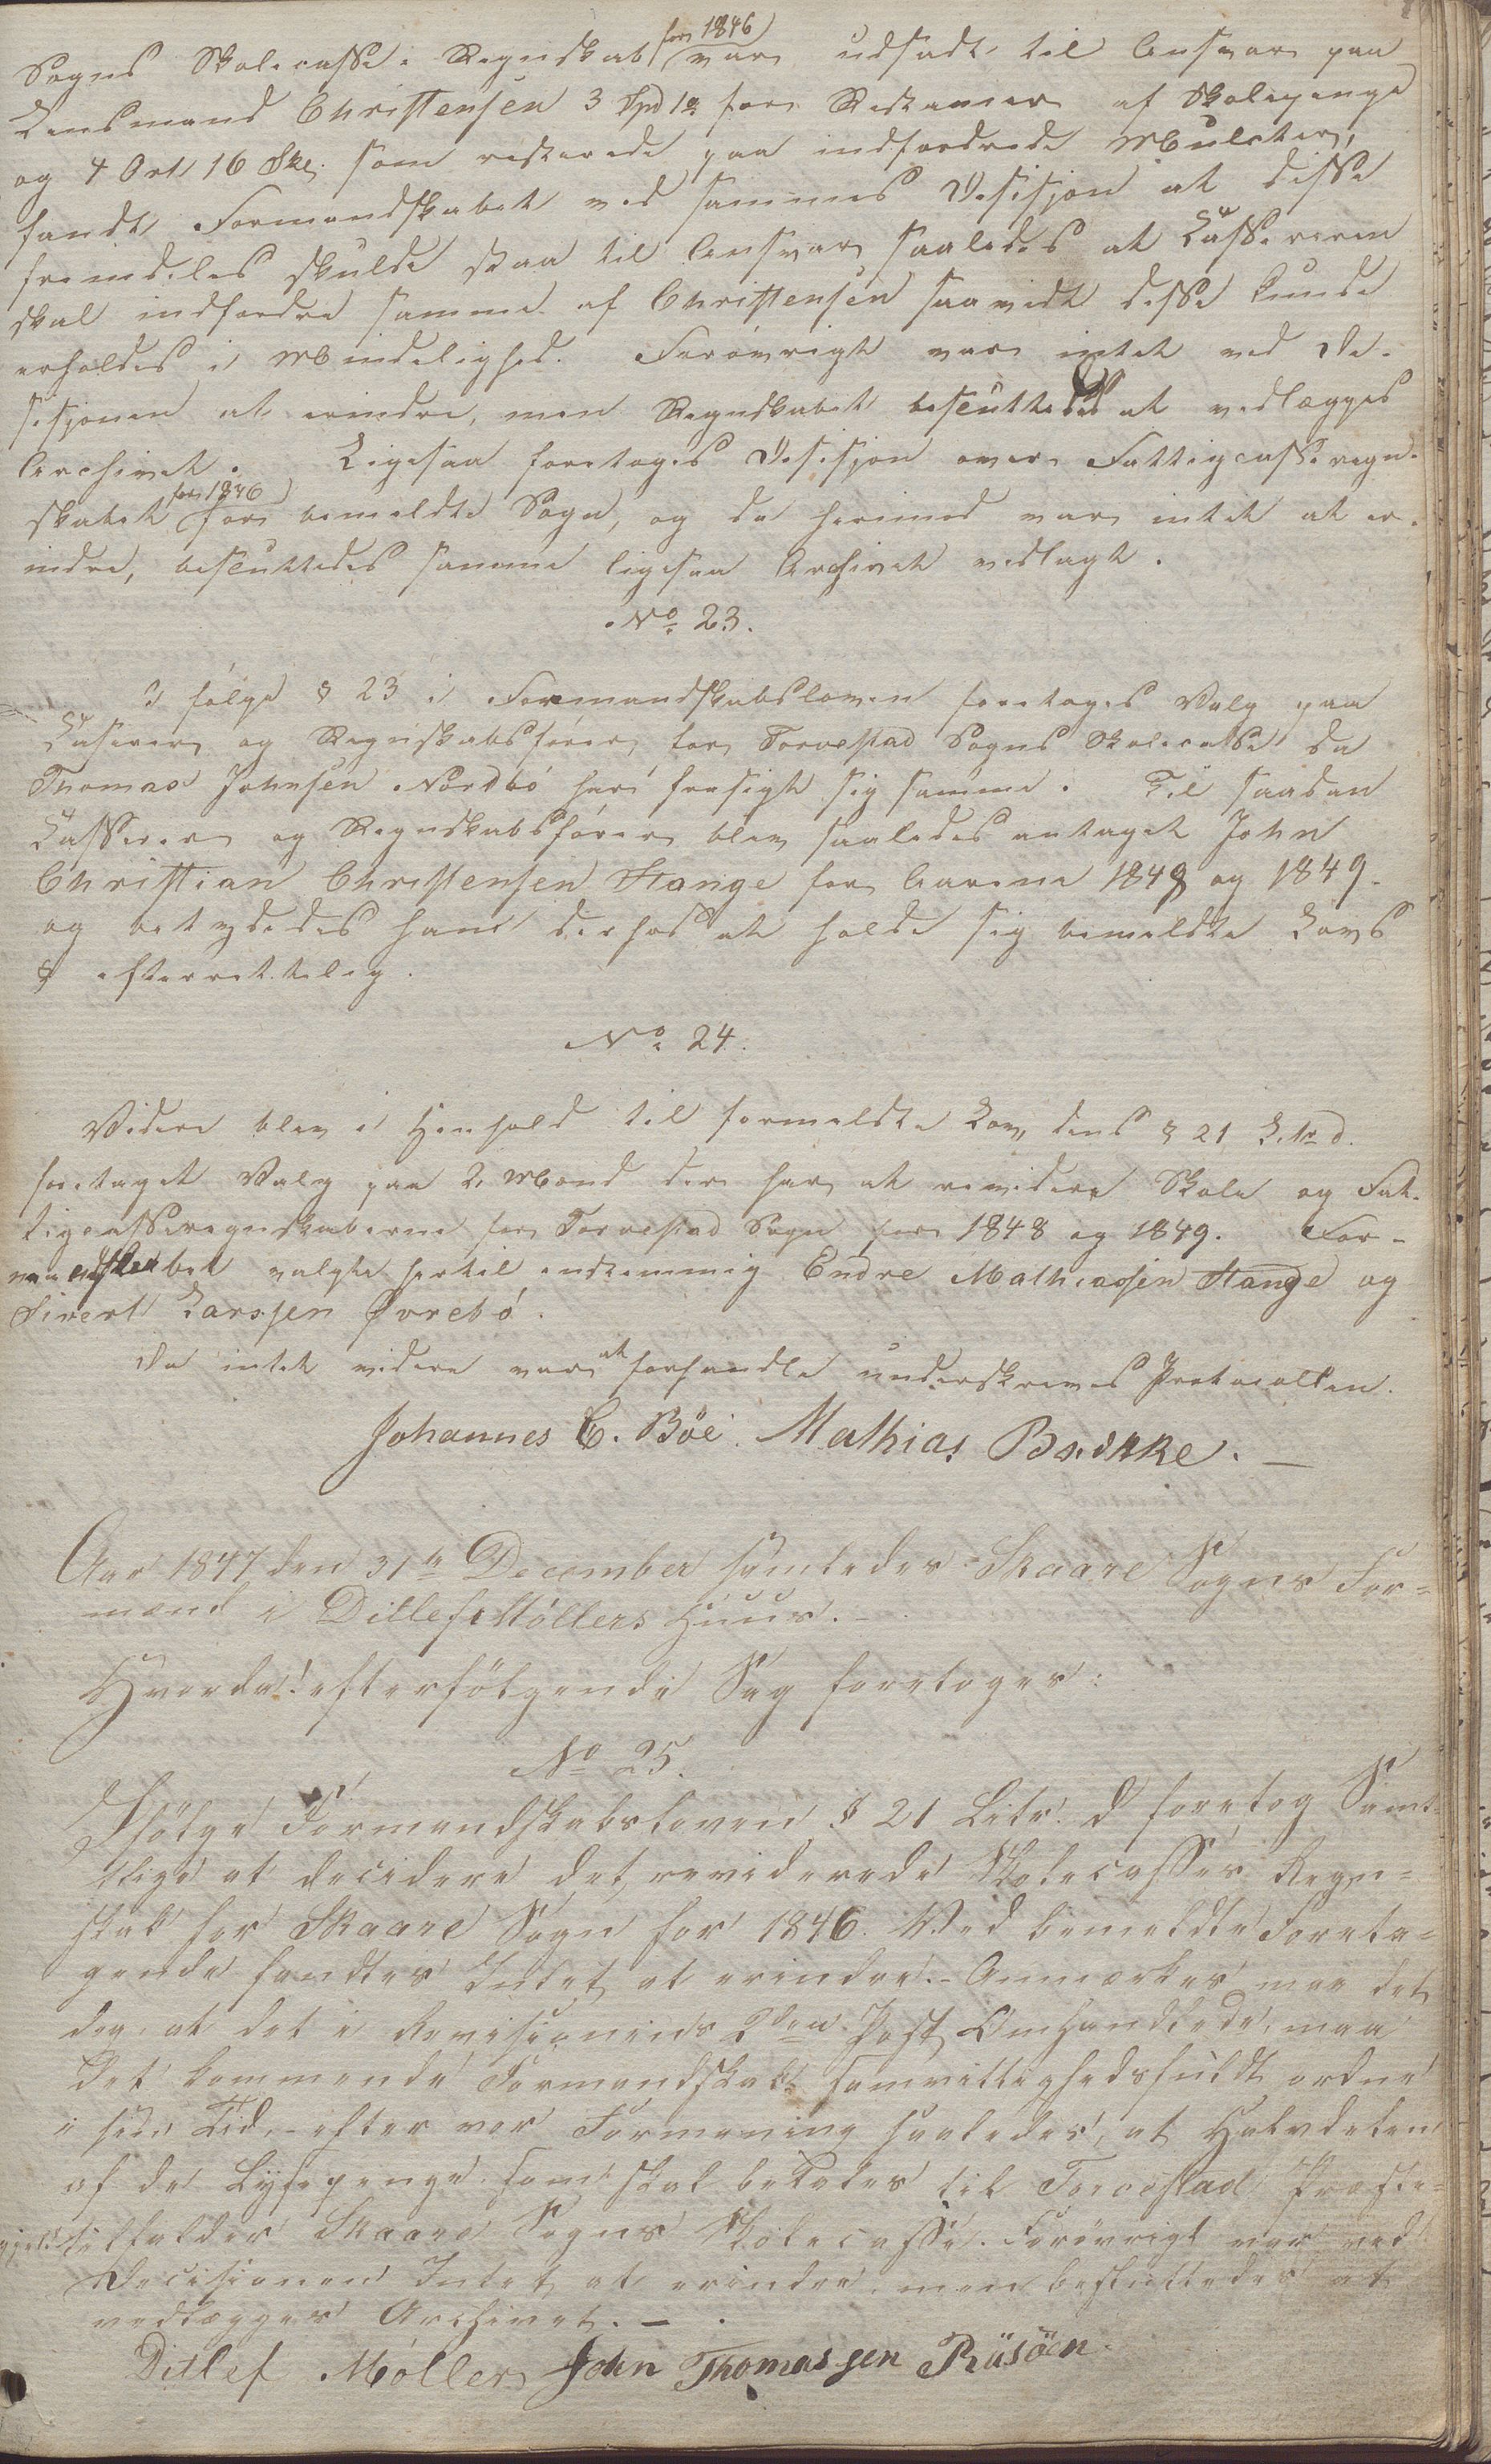 for 1846
Sogns Skolecasse-Regnskab var udsadt til Ansvar paa
Lensmand Christensen 3 Spd 1 for Restancer af Skolepenge
og 4 Ort 16 Skl. som resterede paa indfordrede Mulcter,
fandt Formandskabet ved sammes Desisjon at disse
fremdeles skulde staa til Ansvar saaledes at Cassereren
skal indfordre samme af Christensen saavidt disse kunde
erholdes i Mindelighed. Forøvrigt var intet ved De-
sisjonen at erindre, men Regnskabet besluttedes at vedlægges
Archivet. Ligesaa foretoges Desisjon over Fattigcasseregn-
for 1846
skabet for bemeldte Sogn, og da herimod var intet at er-
indre, besluttedes samme ligesaa Archivet vedlagt.
No. 23.
I følge § 23 i Formandskabsloven foretoges Valg paa
Casserer og Regnskabsfører for Torvestad Sogns Skolecasse da
Thomas Johnsen Nordbö har frasigt sig samme. Til saadan
Casserer og Regnskabsfører blev saaledes antaget John
Christian Christensen Stange for Aarene 1848 og 1849.
og betydedes ham derhos at holde sig bemeldte Lovs
§ efterrettelig.
No. 24.
Videre blev i Henhold til formeldte Lov, dens § 21 L. d.
foretaget Valg paa 2 Mænd der har at revidere Skole og Fat-
tigcasseregnskaberne for Torvestad Sogn for 1848 og 1849. For-
mandskabet valgte hertil endstemmig Endre Mathiassen Stange og
Sivert Larssen Øvrebö.
Da intet videre var at forhandle underskreves Protocollen.
Johannes C. Böe. Mathias Bædkke. —
Aar 1847 den 31te December samledes Skaare Sogns For=
mænd i Ditlef Møllers Huus.—
Hvorda efterfölgende Sag foretoges:
No 25.
Ifölge Formandskabsloven § 21 Litr. d foretog Samt-
lige at decidere det reviderede Skolecasses Regn=
skab for Skaare Sogn for 1846. Ved bemeldte Foreta=
gende fandtes Intet at erindre.- Anmærkes maa det
dog at det i Revisionens 2den Post Omhandlede, maa
det kommende Formandskab samvittighedsfuldt ordne
i sin Tid,- efter vor Formening saaledes, at Halvdelen
af de Lysepenge som skal betales til Torvestad Præste=
gjeld tilfalder Skaare Sogns Skolecasse. Forøvrigt var ved
Decisionen Intet at erindre, men besluttedes at
vedlægges Archivet. —
Ditlef Møller John Thomassen Risöen